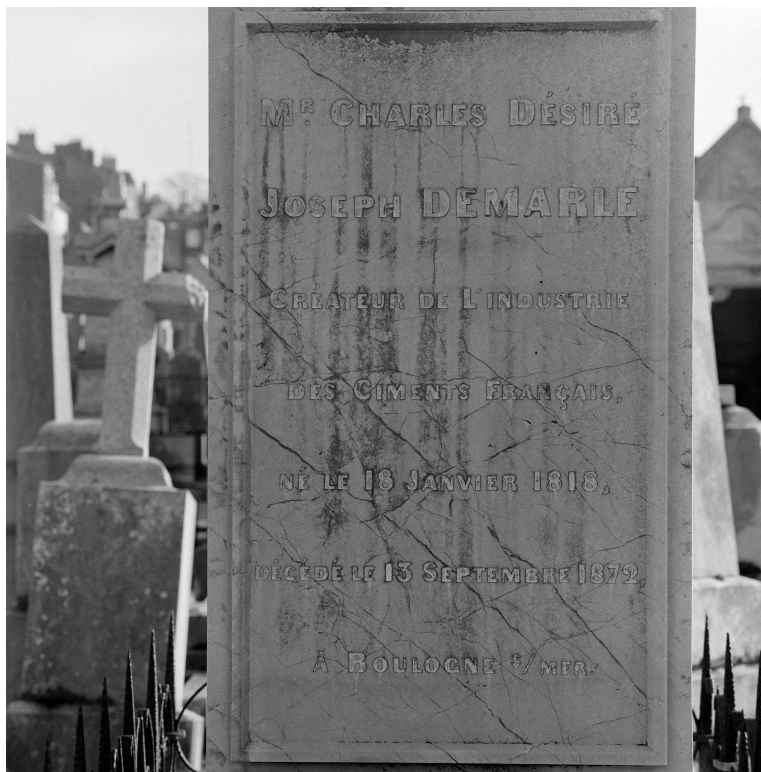 Mr CHARLES DÉSIRÉ
JOSEPH DEMARLE,
CRÉATEUR DE L'INDUSTRIE
DES CIMENTS FRANÇAIS,
NÉ LE 18 JANVIER 1818,
DÉCÉDÉ LE 13 SEPTEMBRE 1872,
À BOULOGNE S/MER.